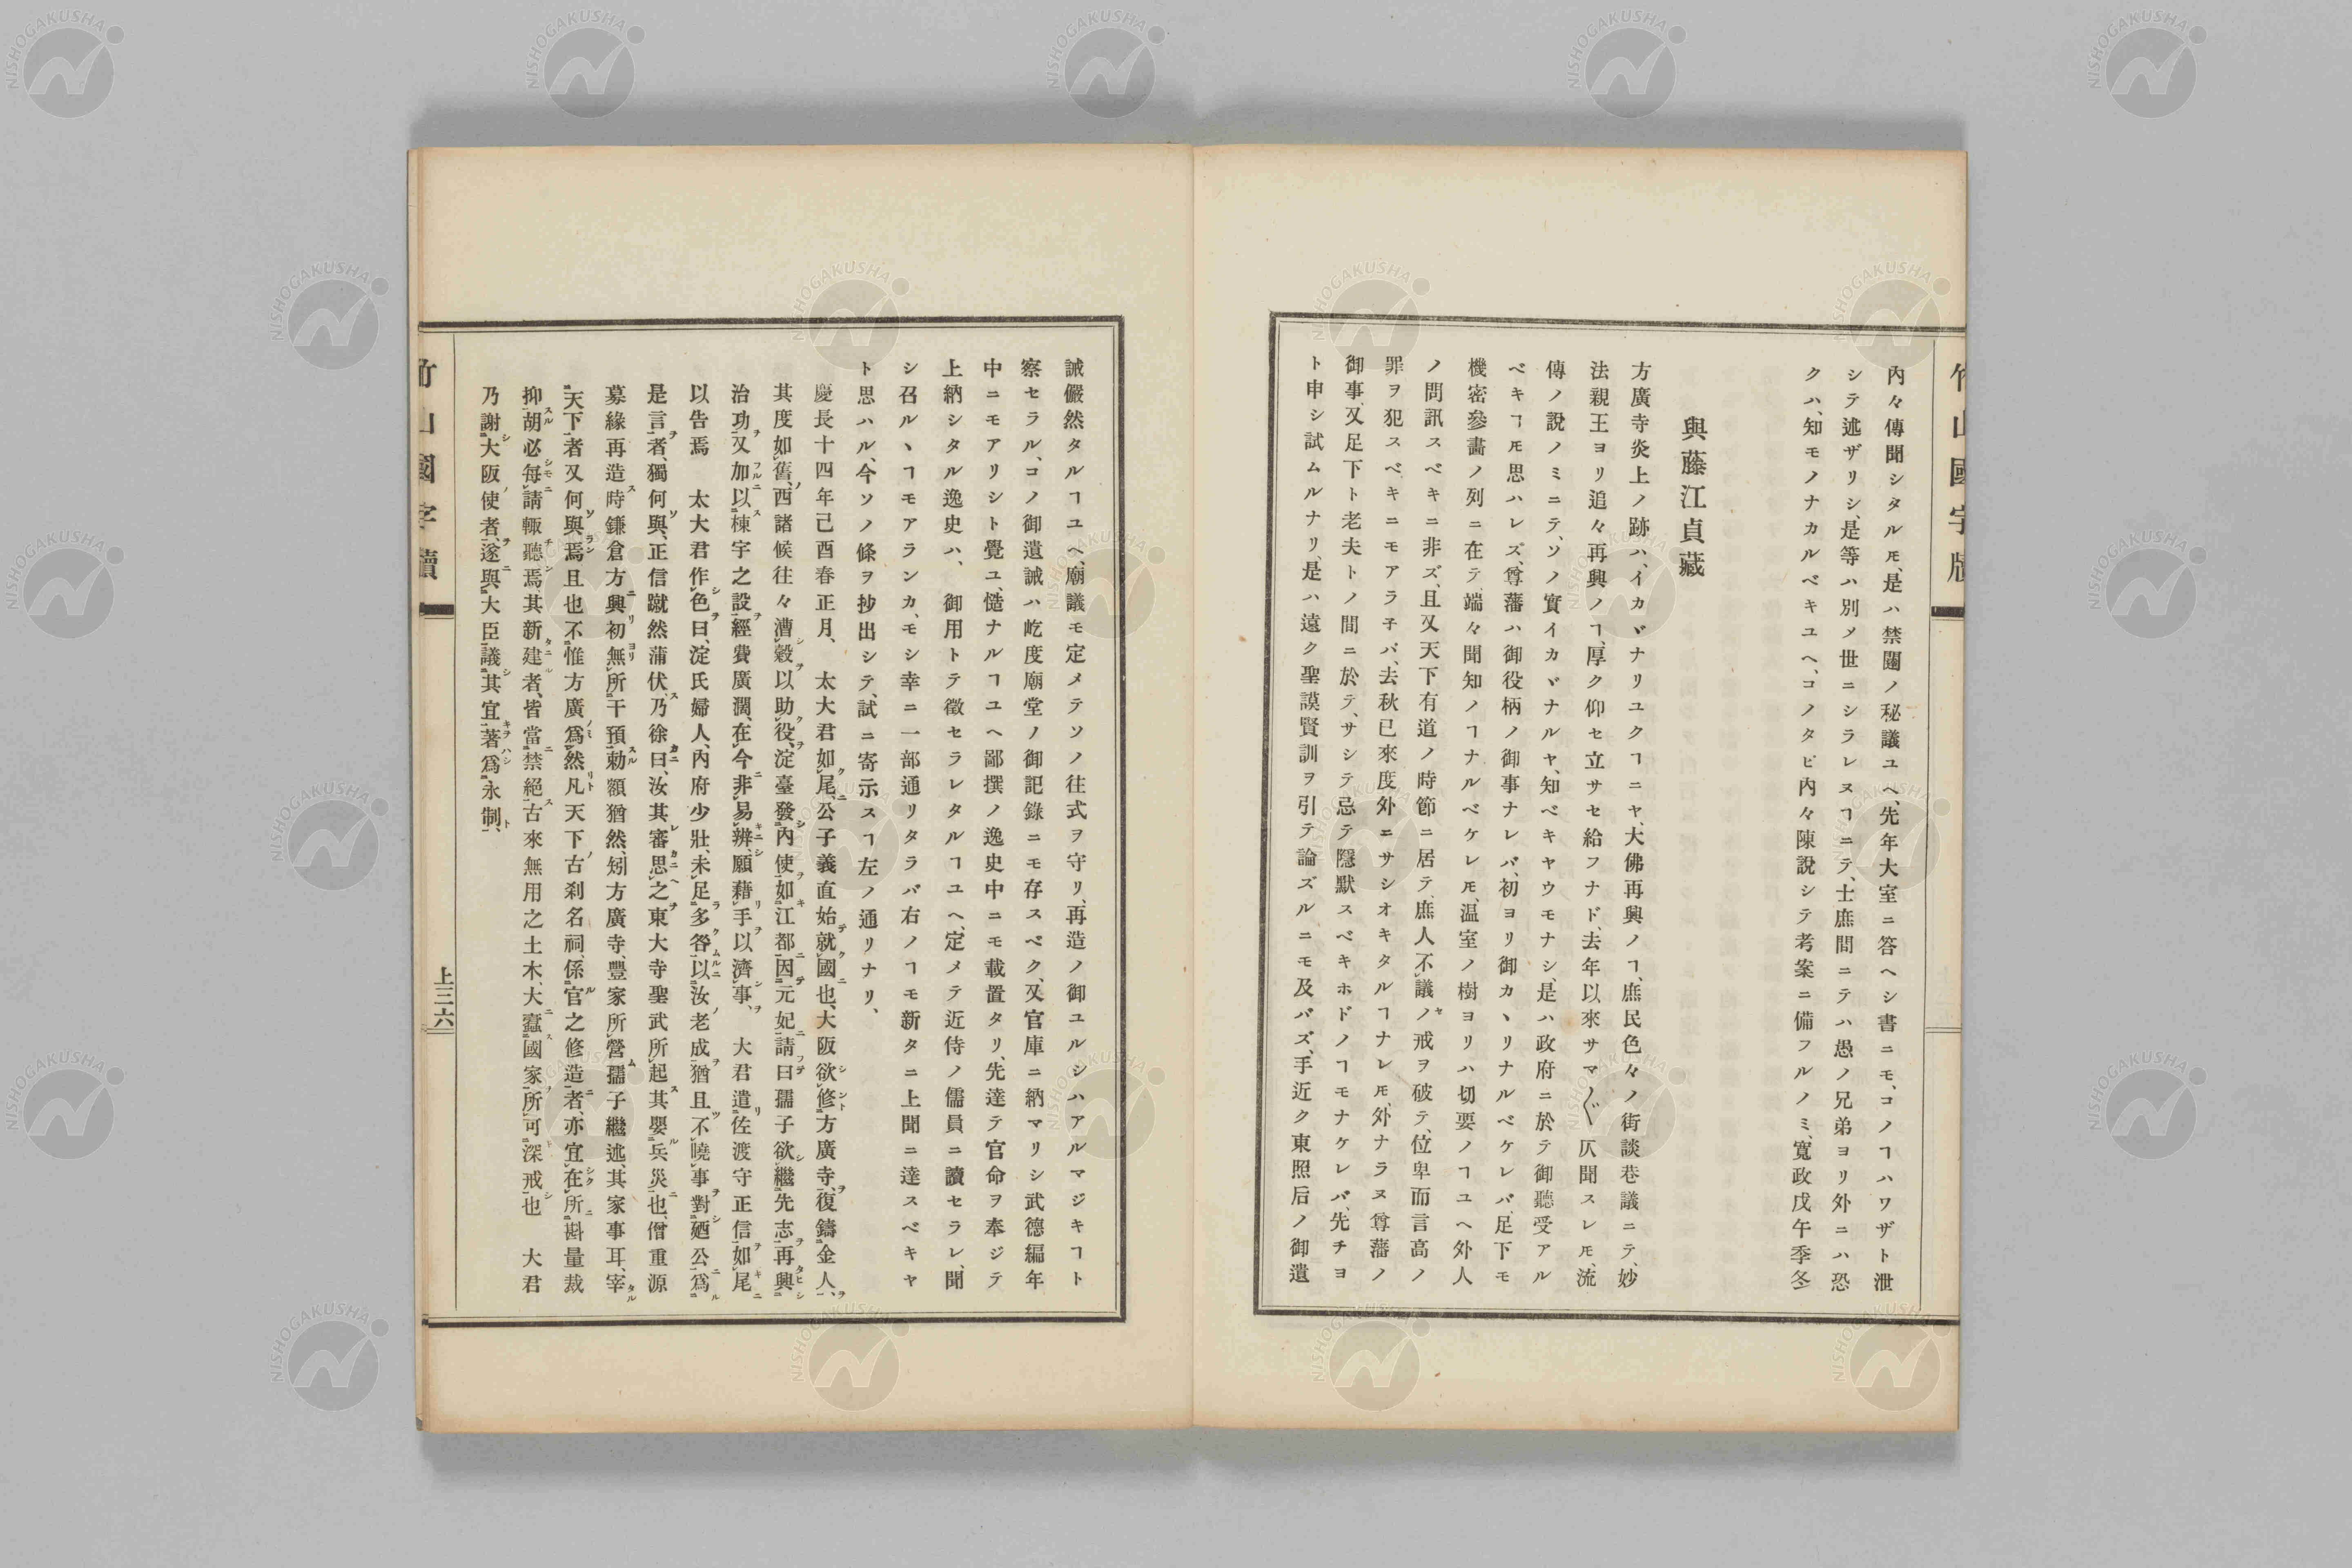 內々傳聞シタルモ、是ハ禁闥ノ秘議ユヘ、先年大室ニ答ヘシ書ニモ、コノヿハワザト泄
シテ述ザリシ、是等ハ別〆世ニシラレヌヿニテ、士庶間ニテハ愚ノ兄弟ヨリ外ニハ恐
クハ、知モノナカルベキユヘ、コノタビ內々陳說シテ考案ニ備フルノミ、寬政戊午季冬
與藤江貞藏
方廣寺炎上ノ跡ハ、イカヾナリユクヿニヤ、大佛再興ノヿ、庶民色々ノ街談巷議ニテ、妙
法親王ヨリ追々再興ノヿ、厚ク仰セ立サセ給フナド、去年以來サマ〴〵仄聞スレ𪜈、流
傳ノ說ノミニテ、ソノ實イカヾナルヤ、知ベキヤウモナシ、是ハ政府ニ於テ御聽受アル
ベキヿ𪜈思ハレズ、尊藩ハ御役柄ノ御事ナレバ、初ヨリ御カヽリナルベケレバ、足下モ
機密參畫ノ列ニ在テ、端々聞知ノヿナルベケレ𪜈、温室ノ樹ヨリハ切要ノヿユヘ外人
ノ問訊スベキニ非ズ、且又天下有道ノ時節ニ居テ、庶人不議ノ戒ヲ破テ、位卑而言高ノ
罪ヲ犯スベキニモアラ子バ、去秋已來度外ニサシオキタルヿナレ𪜈、外ナラヌ尊藩ノ
御事、又足下ト老夫トノ間ニ於テ、サシテ忌テ隱默スベキホドノヿモナケレバ、先チヨ
ト申シ試ムルナリ、是ハ遠ク聖謨賢訓ヲ引テ論ズルニモ及バズ、手近ク東照后ノ御遺
誡儼然タルヿユヘ、廟議モ定メテソノ往式ヲ守リ、再造ノ御ユルシハアルマジキヿト
察セラル、コノ御遺誡ハ屹度廟堂ノ御記錄ニモ存スベク、又官庫ニ納マリシ武德編年
中ニモアリシト覺ユ、慥ナルヿユヘ鄙撰ノ逸史中ニモ載置タリ、先達テ官命ヲ奉ジテ
上納シタル逸史ハ、御用トテ徵セラレタルヿユヘ、定メテ近侍ノ儒員ニ讀セラレ、聞
シ召ルヽヿモアランカ、モシ幸ニ一部通リタラバ右ノヿモ新タニ上聞ニ達スベキヤ
ト思ハル、今ソノ條ヲ抄出シテ、試ニ寄示スヿ左ノ通リナリ、
慶長十四年己酉春正月、　太大君如尾、公子義直始就國也、大阪欲修方廣寺、復鑄金人、
其度如舊、西諸侯往々漕穀、以助役、淀臺發內使如江都、因元妃請曰、孺子欲繼先志、再興
治功、又加以棟宇之設、經費廣濶、在今非易辨、願藉手以濟事、　大君遣佐渡守正信如尾
以告焉　太大君作色曰、淀氏婦人、內府少壯、未足多咎、以汝老成、猶且不曉事對廼公爲
是言者、獨何與、正信蹴然蒲伏、乃徐曰、汝其審思之、東大寺聖武所起、其嬰兵災也、僧重源
募緣再造、時鎌倉方興、初無所干預、勅額猶然、矧方廣寺、豐家所營、孺子繼述、其家事耳、宰
天下者、又何與焉、且也不惟方廣爲然、凡天下古刹名祠、係官之修造者、亦宜在所斟量裁
抑、胡必每請輙聽焉、其新建者、皆當禁絕、古來無用之土木、大蠧國家、所可深戒也　大君
乃謝大阪使者、遂與大臣議、其宜著爲永制、
上三六